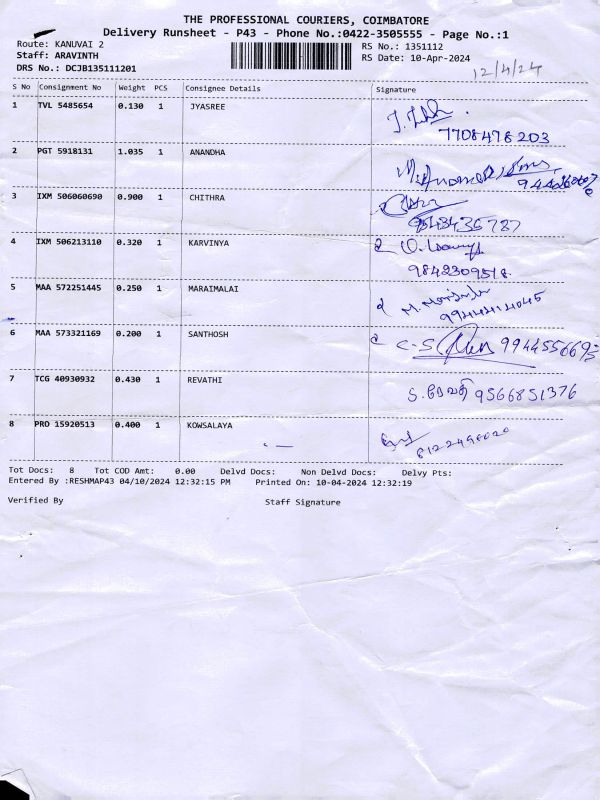 THE PROFESSIONAL COURIERS, COIMBATORE
Delivery Runsheet - P43 - Phone No.:0422-3505555 - Page No.:1
Route: KANUVAI 2 RS No.: 1351112
Staff: ARAVINTH RS Date: 10-Apr-2024
DRS No.: DCJB135111201 12/4/24
S No Consignment No Weight PCS Consignee Details Signature
1 TVL 5485654 0.130 1 JYASREE
7708478203
2 PGT 5918131 1.035 1 ANANDHA
3 IXM 506060690 0.900 1 CHITHRA
4 IXM 506213110 0.320 1 KARVINYA
9842309518
5 MAA 572251445 0.250 1 MARAIMALAI
6 MAA 573321169 0.200 1 SANTHOSH
C-S
7 TCG 40930932 0.430 1 REVATHI
S.ரேவதி 9566851376
8 PRO 15920513 0.400 1 KOWSALAYA
Tot Docs: 8 Tot COD Amt: 0.00 Delvd Docs: Non Delvd Docs: Delvy Pts:
Entered By :RESHMAP43 04/10/2024 12:32:15 PM Printed On: 10-04-2024 12:32:19
Verified By Staff Signature